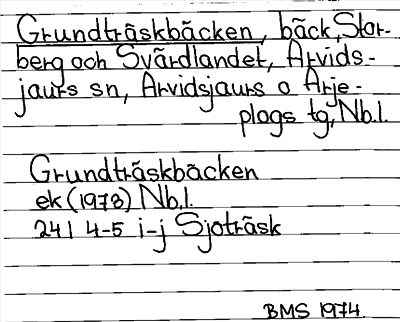 Grundträskbäcken, bäck, Stor-
berg och Svärdlandet, Arvids-
jaurs sn, Arvidsjaurs o Arje-
plogs tg, Nb.l.
Grundträskbäcken
ek (1978) Nb.l.
24 I 4-5 i-j Sjoträsk
BMS 1974